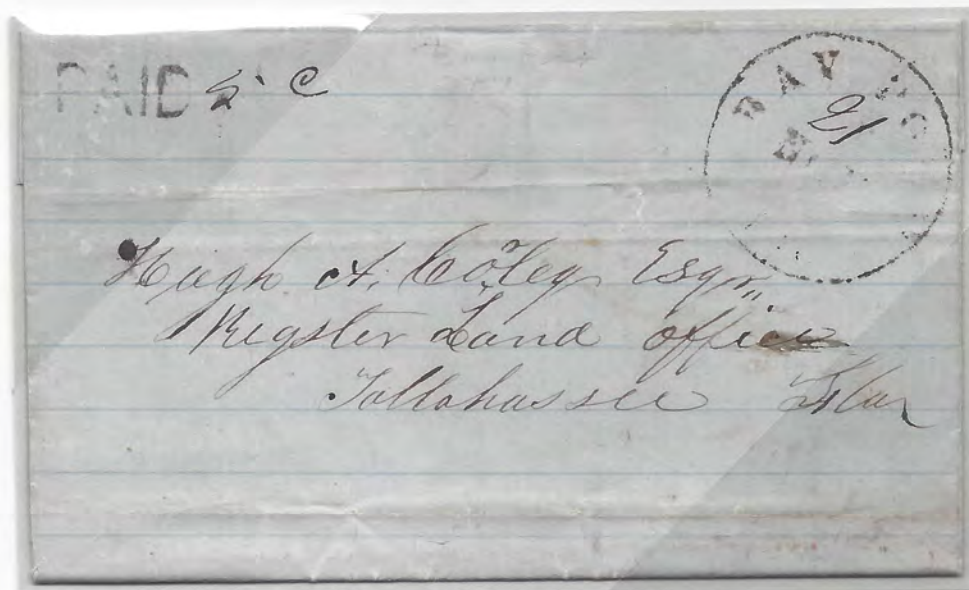 PAID 5 C
21
Hugh A. Coley Esqr
Regster Land office
Tallahassee Flar